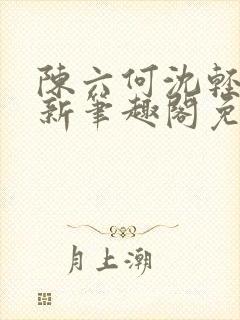 陳六何沈輕
新筆趣閣免
月上潮